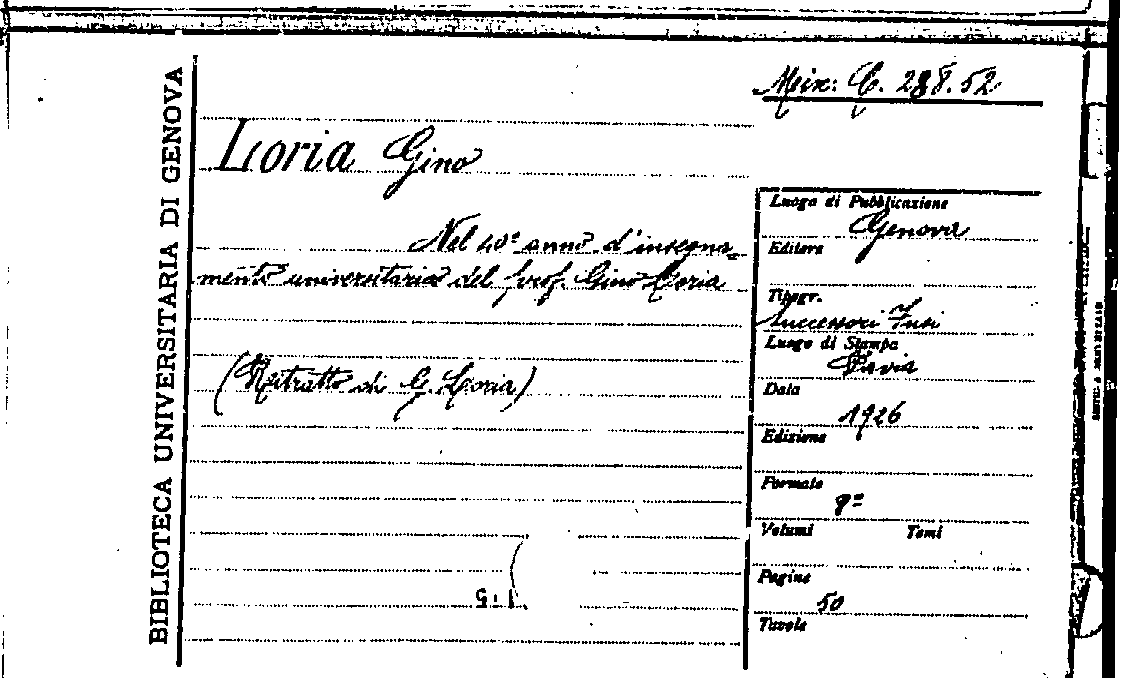 BIBLIOTECA UNIVERSITARIA DI GENOVA
Misc: C. 288.52
Loria Gino
Nel 40° anno d'insegna=
mento universitario del prof. Gino Loria
(Ritratto di G. Loria)
Luogo di Pubblicazione
Genova
Editore
Tipogr.
Successori Fusi
Luogo di Stampa
Pavia
Data
1926
Edizione
Formato
8°
Volumi Tomi
Pagine
50
Tavole